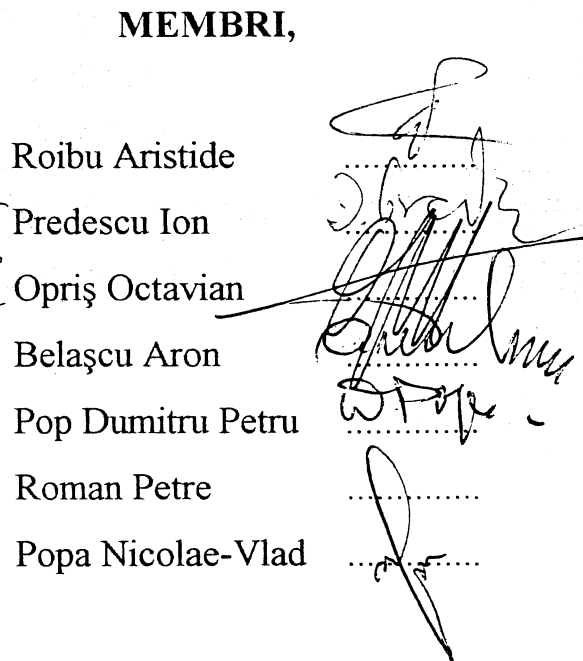 MEMBRI,
Roibu Aristide ..............
Predescu Ion ..............
Opriş Octavian ..............
Belaşcu Aron ..............
Pop Dumitru Petru ..............
Roman Petre ..............
Popa Nicolae-Vlad ..............